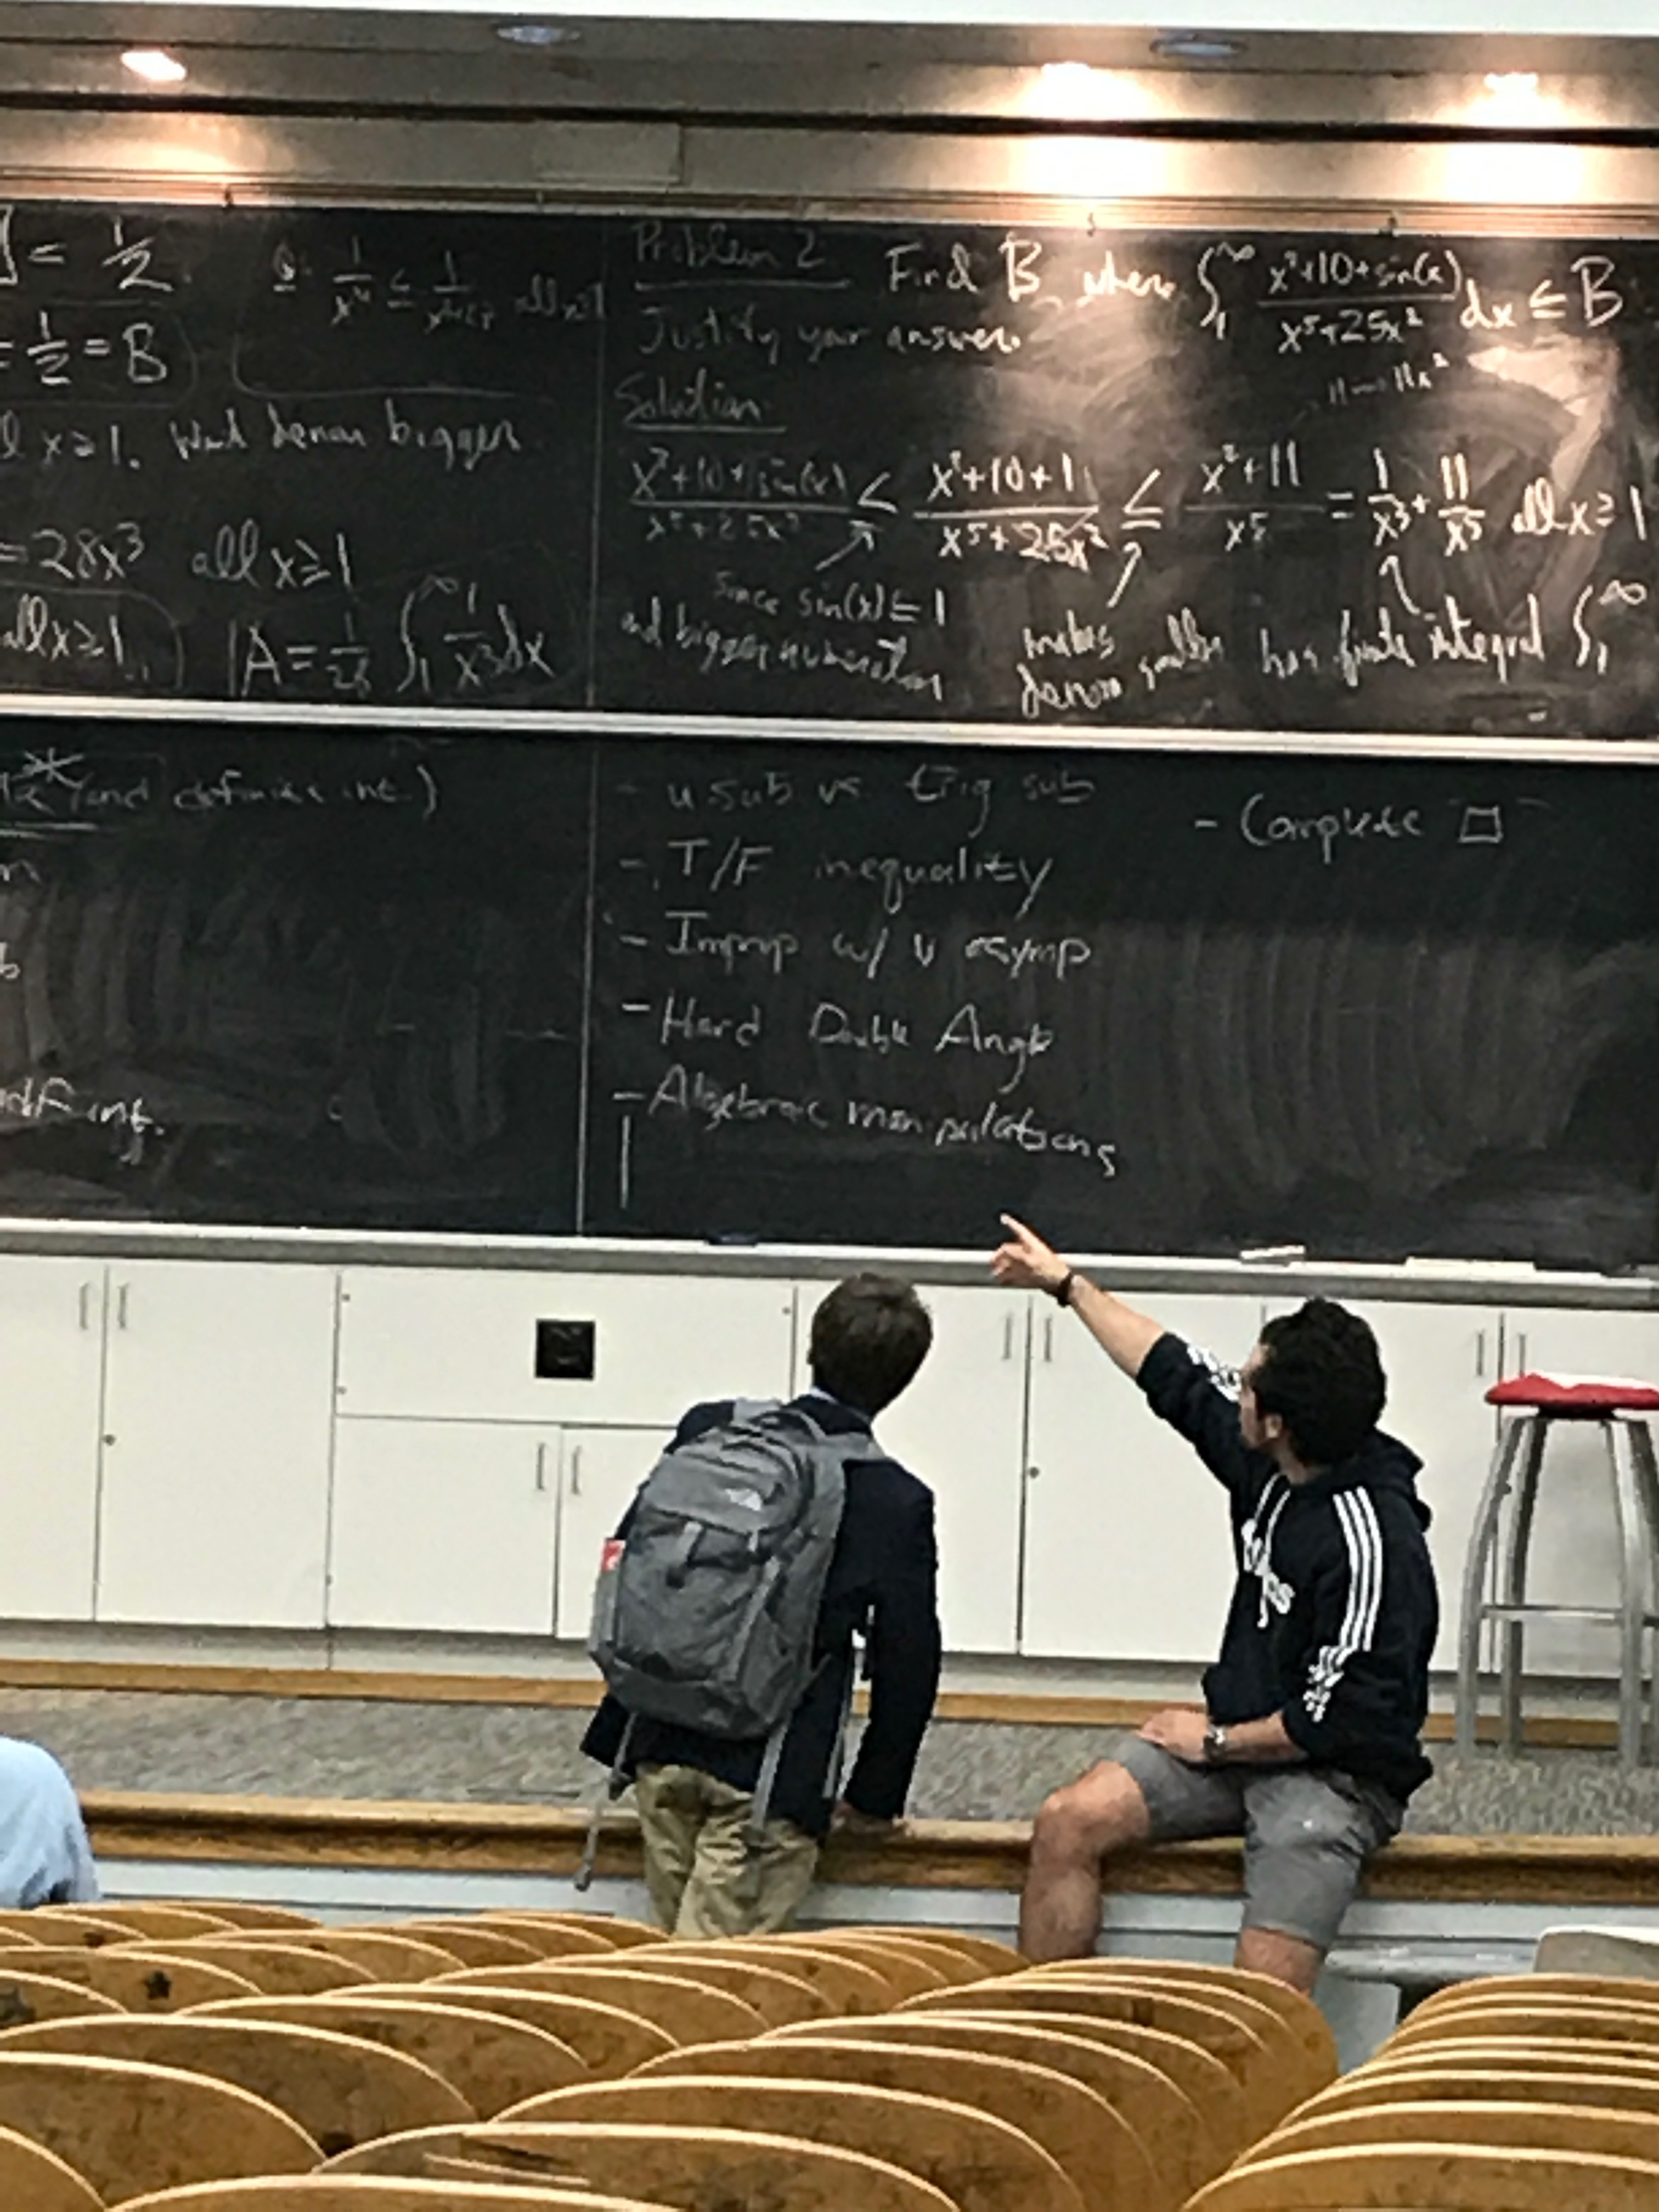 = 1/2
= 1/2 = B
x ≥ 1. Want denom bigger
= 28x³ all x ≥ 1
all x ≥ 1
A = ∫₁^∞ 1/x³ dx
1/x⁴ ≤
Problem 2 Find B, where ∫₁^∞ (x²+10+sin(x))/(x⁵+25x²) dx ≤ B
Justify your answer.
Solution
(x²+10+sin(x))/(x⁵+25x²) ≤ (x²+10+1)/(x⁵+25x²) ≤ (x²+11)/x⁵ = 1/x³ + 11/x⁵ all x ≥ 1
since sin(x) ≤ 1
and bigger numerator
makes
denom smaller
has finite integral ∫₁^∞
(and definite int.)
- u sub vs trig sub
- T/F inequality
- Improp w/ v asymp
- Hard Double Angle
- Algebraic manipulations
- Complete □